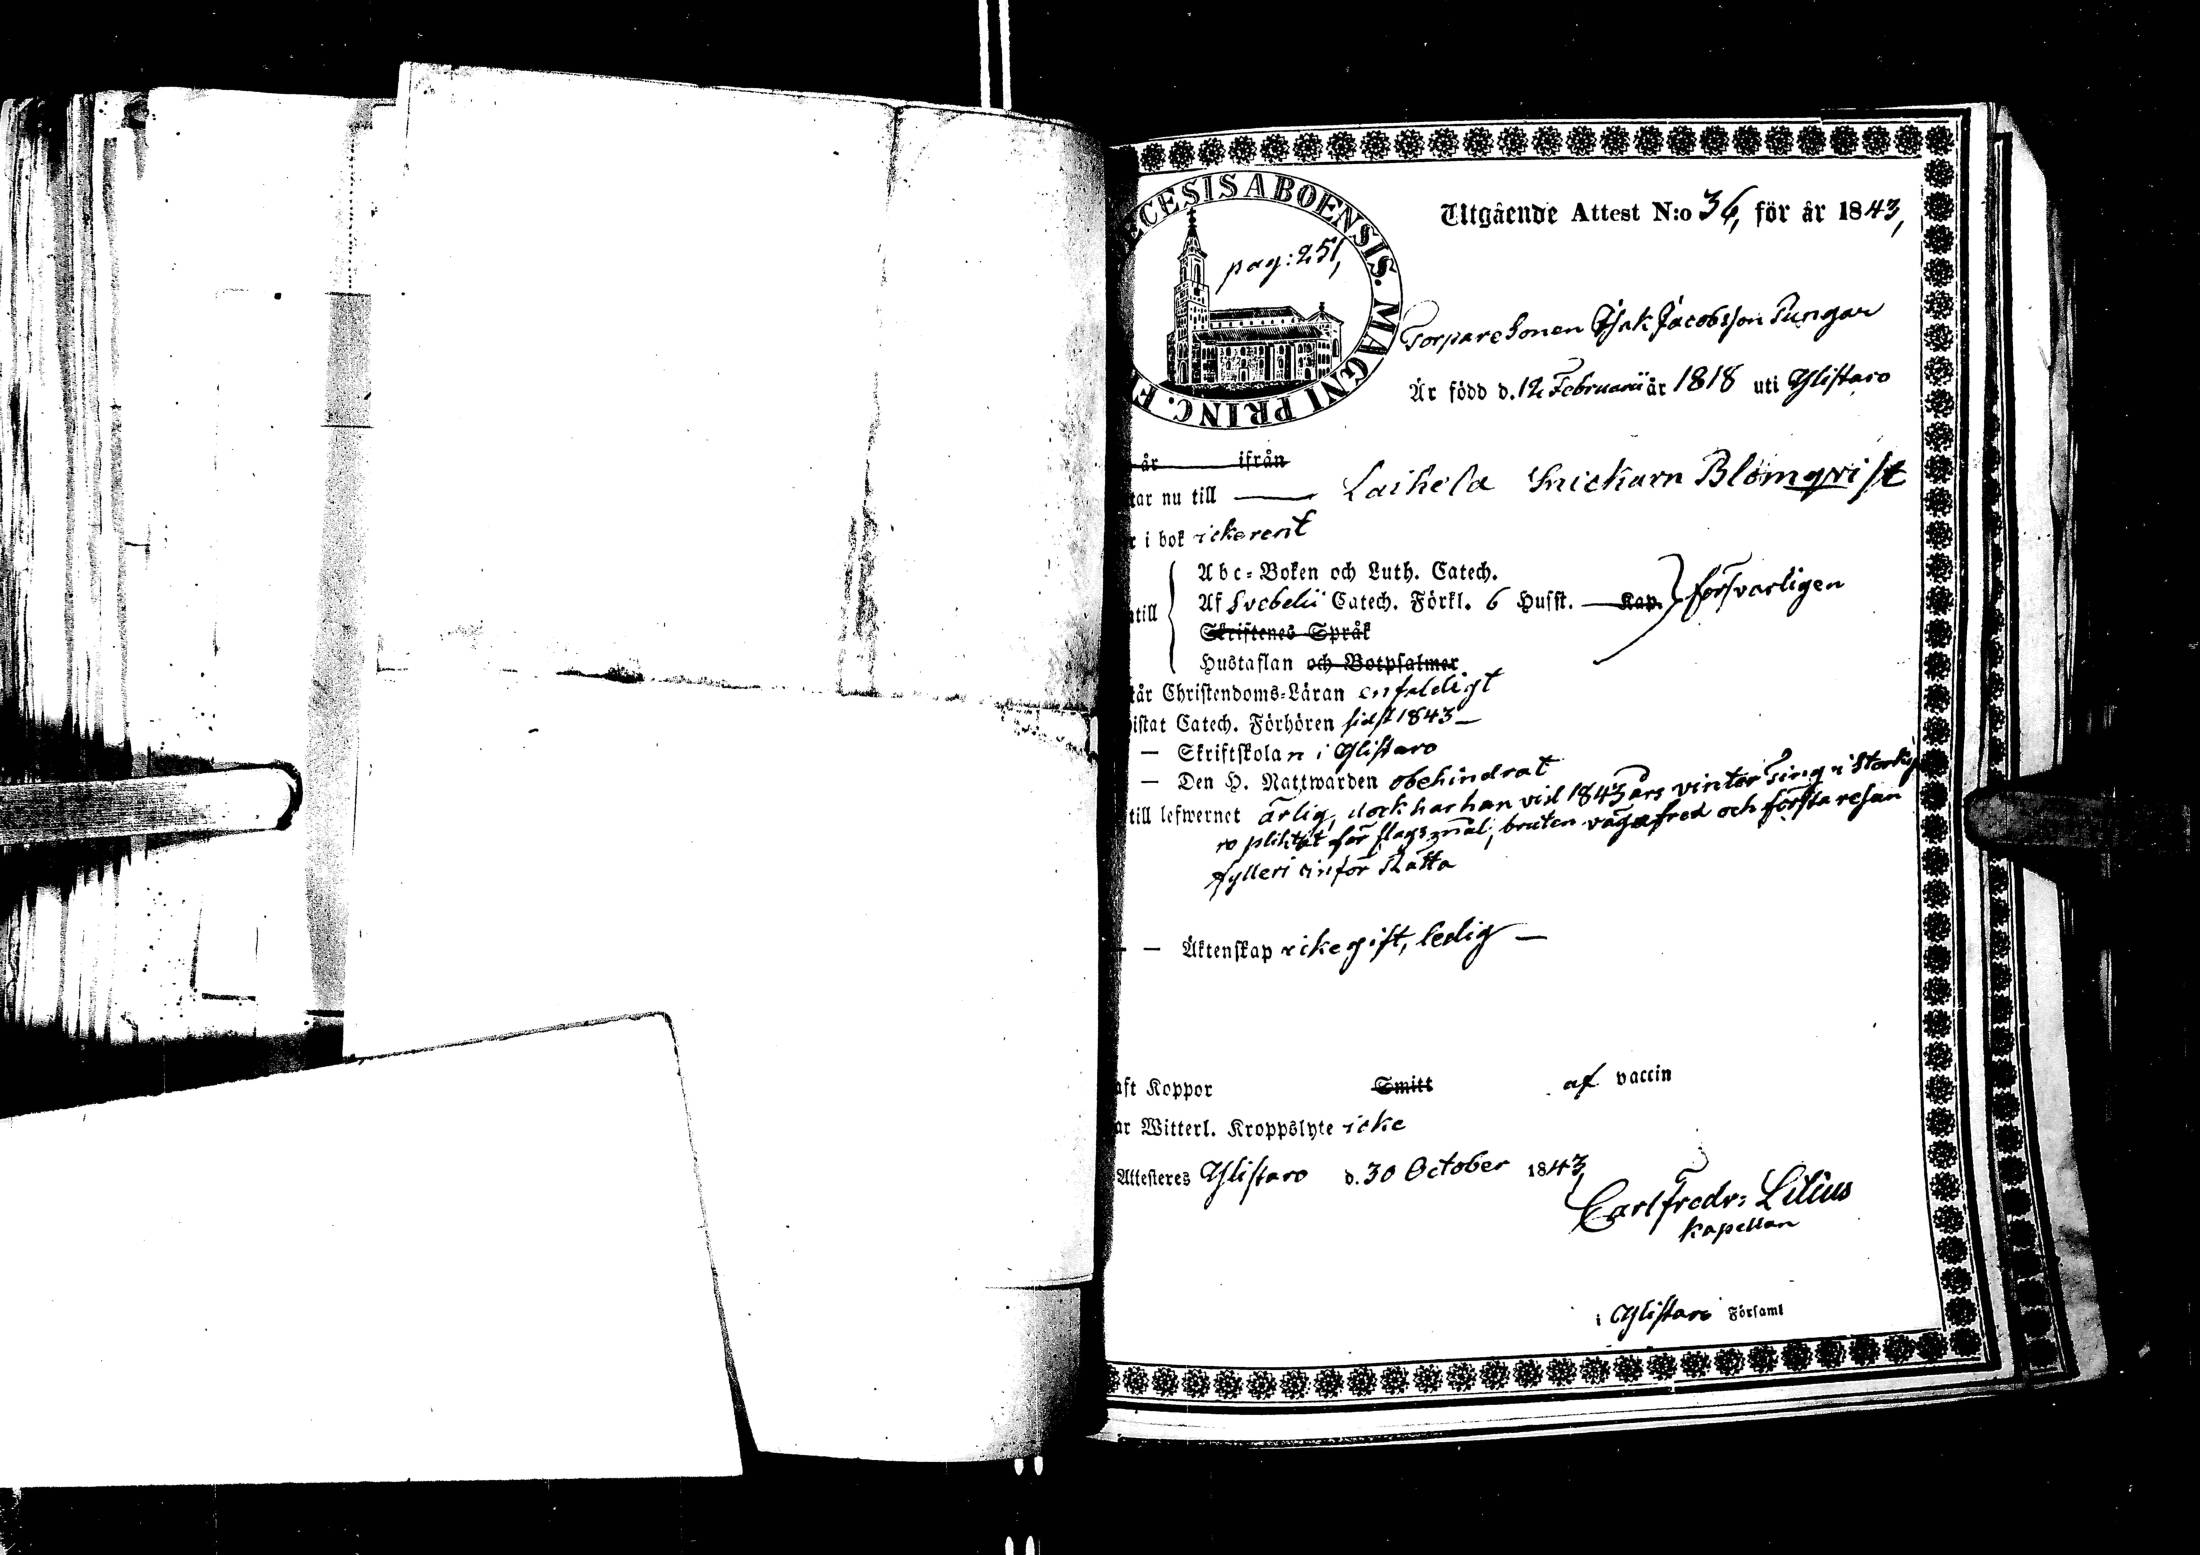 ECESIS ABOENSIS. MAGNI PRINC. F
pag: 251,
Utgående Attest N:o 36, för år 1843,
Torpare Sonen Isak Jacobsson Pungar
Är född d. 12 Februarii år 1818 uti Ylistaro
år ifrån
tar nu till Laihela Snickarn Blomqvist
r i bok icke rent
Abc-Boken och Luth. Catech.
Af Svebelii Catech. Förkl. 6 Husst. Kap. } försvarligen
till
Skriftenes Språk
Hustaflan och Botpsalmer
tår Christendoms-Läran enfaldigt
istat Catech. Förhören sidst 1843 —
— Skriftskolan i Ylistaro
— Den H. Nattwarden obehindrat
till lefwernet ärlig, dock har han vid 1843 års vinter Ting i Storky
ro pliktat för slagsmål, bruten vägafred och första resan
fylleri inför Rätta
— — Äktenskap icke gift, ledig —
aft Koppor Smitt af vaccin
ar Witterl. Kroppslyte icke
Attesteres Ylistaro d. 30 October 1843,
Carl Fredr: Lilius
Kapellan
i Ylistaro Församl